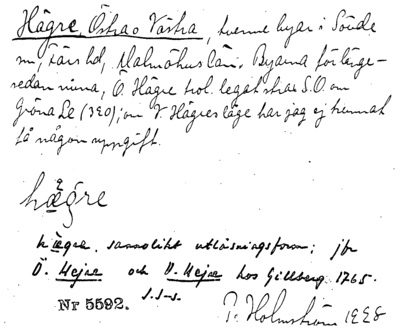 Hägre, Östra o Västra, tvenne byar i Södde
sn, Färs hd, Malmöhus län. Byarna för länge-
sedan rivna, Ö. Hägre trol. legat strax S.O. om
Gröna Le (320); om V. Hägres läge har jag ej kunnat
få någon uppgift.
hægre
hægre, sannolikt utläsningsform; jfr
Ö. Hejre och V. Hejre hos Gillberg 1765.
Nr 5592.
P. Holmström